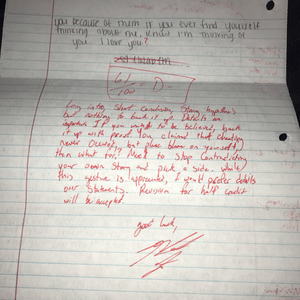 you because at mum if you ever find yourself
thinking about me, know I'm thinking of
you. I love you?
61/100 D-
Long intro, short conclusion, strong hypothesis
but nothing to back it up. Details are
important. If you want to be believed, back
it up with proof. You claimed that cheating
never occurred, but place blame on yourself,
then what for. Need to stop contradicting
your own story and pick a side. While
this gesture is appreciated, I would prefer details
over statements. Revision for half credit
will be accepted.
Good luck,